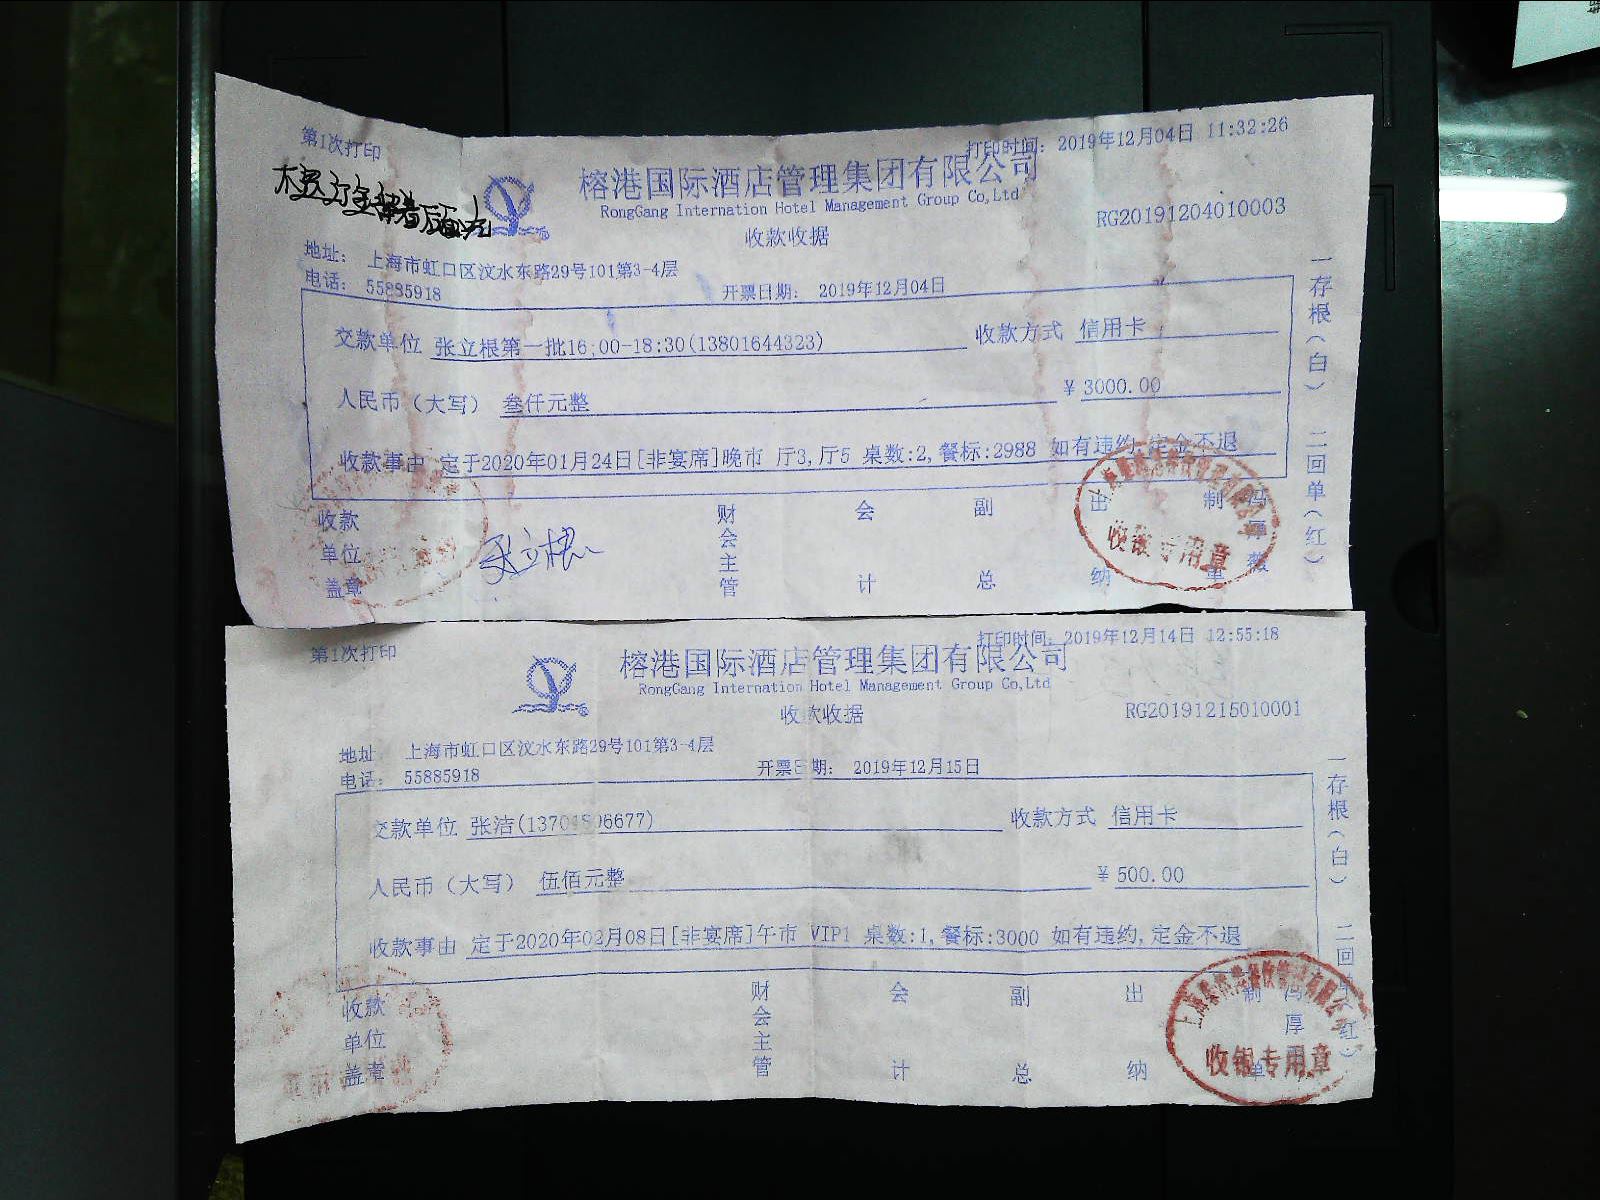 第1次打印
打印时间: 2019年12月04日 11:32:26
榕港国际酒店管理集团有限公司
RongGang Internation Hotel Management Group Co,Ltd
RG20191204010003
收款收据
地址: 上海市虹口区汶水东路29号101第3-4层
电话: 55885918
开票日期: 2019年12月04日
交款单位 张立根第一批16:00-18:30(13801644323) 收款方式 信用卡
人民币(大写) 叁仟元整 ¥3000.00
收款事由 定于2020年01月24日[非宴席]晚市 厅3,厅5 桌数:2,餐标:2988 如有违约,定金不退
收款单位盖章 张立根 财会主管 会计 副总 出纳 制单 冯厚薇
收银专用章
一存根(白) 二回单(红)
第1次打印
打印时间: 2019年12月14日 12:55:18
榕港国际酒店管理集团有限公司
RongGang Internation Hotel Management Group Co,Ltd
RG20191215010001
收款收据
地址: 上海市虹口区汶水东路29号101第3-4层
电话: 55885918
开票日期: 2019年12月15日
交款单位 张洁 收款方式 信用卡
人民币(大写) 伍佰元整 ¥500.00
收款事由 定于2020年02月08日[非宴席]午市 VIP1 桌数:1,餐标:3000 如有违约,定金不退
收款单位盖章 财会主管 会计 副总 出纳 制单 冯厚
收银专用章
一存根(白) 二回单(红)